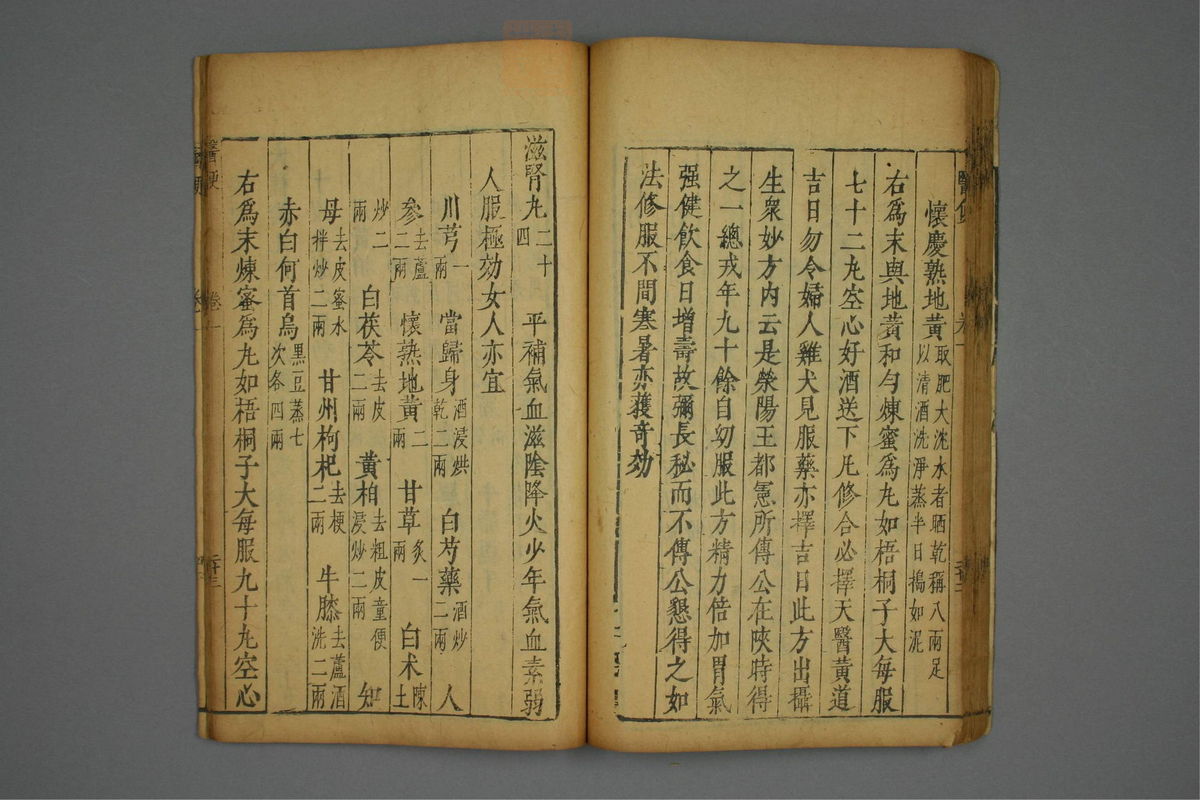 懷慶熟地黃取肥大沈水者晒乾稱八兩足以清酒洗淨蒸半日搗如泥
右爲末與地黃和勻煉蜜爲丸如梧桐子大每服
七十二丸空心好酒送下凡修合必擇天醫黃道
吉日勿令婦人雞犬見服藥亦擇吉日此方出攝
生衆妙方内云是滎陽王都憲所傳公在陜時得
之一總戎年九十餘自㓜服此方精力倍加胃氣
强健飲食日增壽故彌長秘而不傳公懇得之如
法修服不間寒暑亦獲奇効
滋腎丸二十四 平補氣血滋陰降火少年氣血素弱
人服極効女人亦宜
川芎一兩 當歸身酒浸烘乾二兩 白芍藥酒炒二兩 人
參去蘆二兩 懷熟地黃二兩 甘草炙一兩 白术陳土
炒二兩 白茯苓去皮二兩 黃柏去粗皮童便浸炒二兩 知
母去皮蜜水拌炒二兩 甘州枸杞去梗二兩 牛膝去蘆酒洗二兩
赤白何首烏黑豆蒸七次各四兩
右爲末煉蜜爲丸如梧桐子大每服九十丸空心
醫便
卷一
二十三